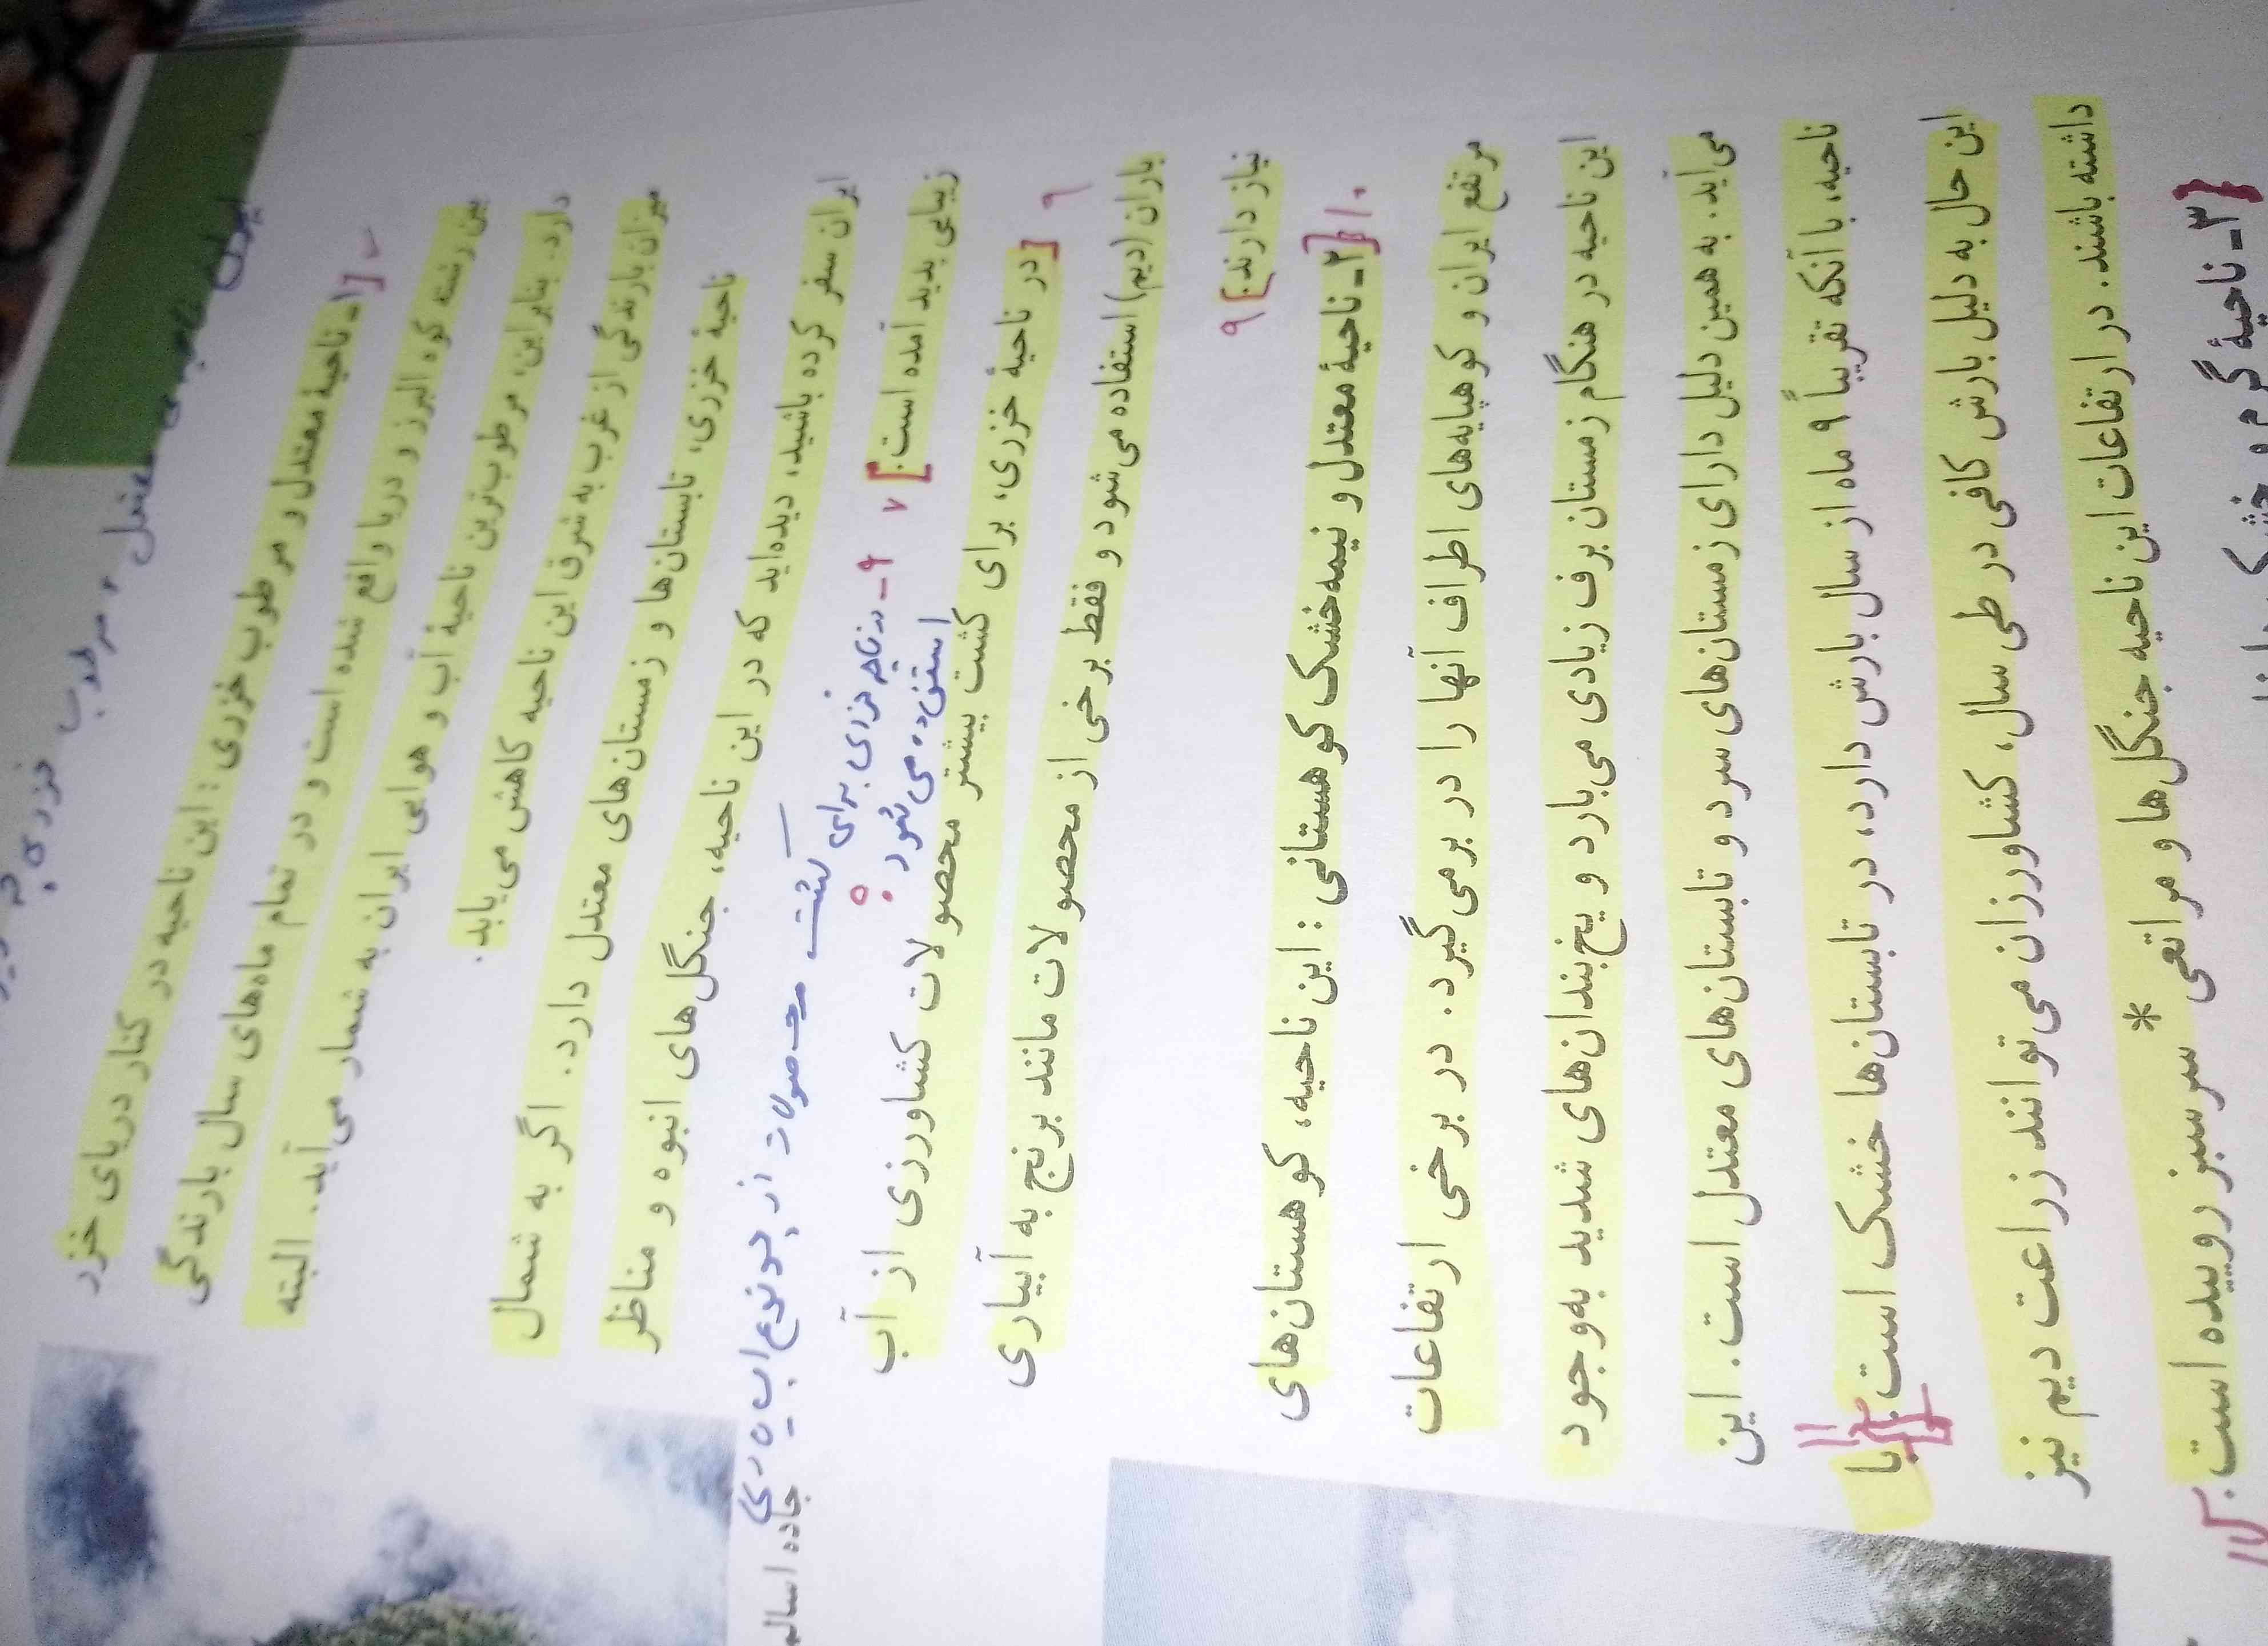 ۱ـ ناحیهٔ معتدل و مرطوب خزری : این ناحیه در کنار دریای خزر
بین رشته کوه البرز و دریا واقع شده است و در تمام ماه‌های سال بارندگی
دارد. بنابراین، مرطوب‌ترین ناحیهٔ آب و هوایی ایران به شمار می‌آید. البته
میزان بارندگی از غرب به شرق این ناحیه کاهش می‌یابد.
ناحیهٔ خزری، تابستان‌ها و زمستان‌های معتدل دارد. اگر به شمال
ایران سفر کرده باشید، دیده‌اید که در این ناحیه، جنگل‌های انبوه و مناظر
زیبایی پدید آمده است. ] ۷
۹ـ در ناحیه خزری برای کشت محصولات از چه نوع آب یاری
استفاده می شود ؟
۹ [ در ناحیهٔ خزری، برای کشت بیشتر محصولات کشاورزی از آب
باران (دیم) استفاده می‌شود و فقط برخی از محصولات مانند برنج به آبیاری
نیاز دارند. ] ۹
۱۰ [ ۲ـ ناحیهٔ معتدل و نیمه‌خشک کوهستانی : این ناحیه، کوهستان‌های
مرتفع ایران و کوهپایه‌های اطراف آنها را در برمی‌گیرد. در برخی ارتفاعات
این ناحیه در هنگام زمستان برف زیادی می‌بارد و یخ‌بندان‌های شدید به‌وجود
می‌آید. به همین دلیل دارای زمستان‌های سرد و تابستان‌های معتدل است. این
ناحیه، با آنکه تقریباً ۹ ماه از سال بارش دارد، در تابستان‌ها خشک است. با
این حال به دلیل بارش کافی در طی سال، کشاورزان می‌توانند زراعت دیم نیز
داشته باشند. در ارتفاعات این ناحیه جنگل‌ها و مراتعی* سرسبز روییده است.
[ ۳ـ ناحیهٔ گرم و
جاده اسالم